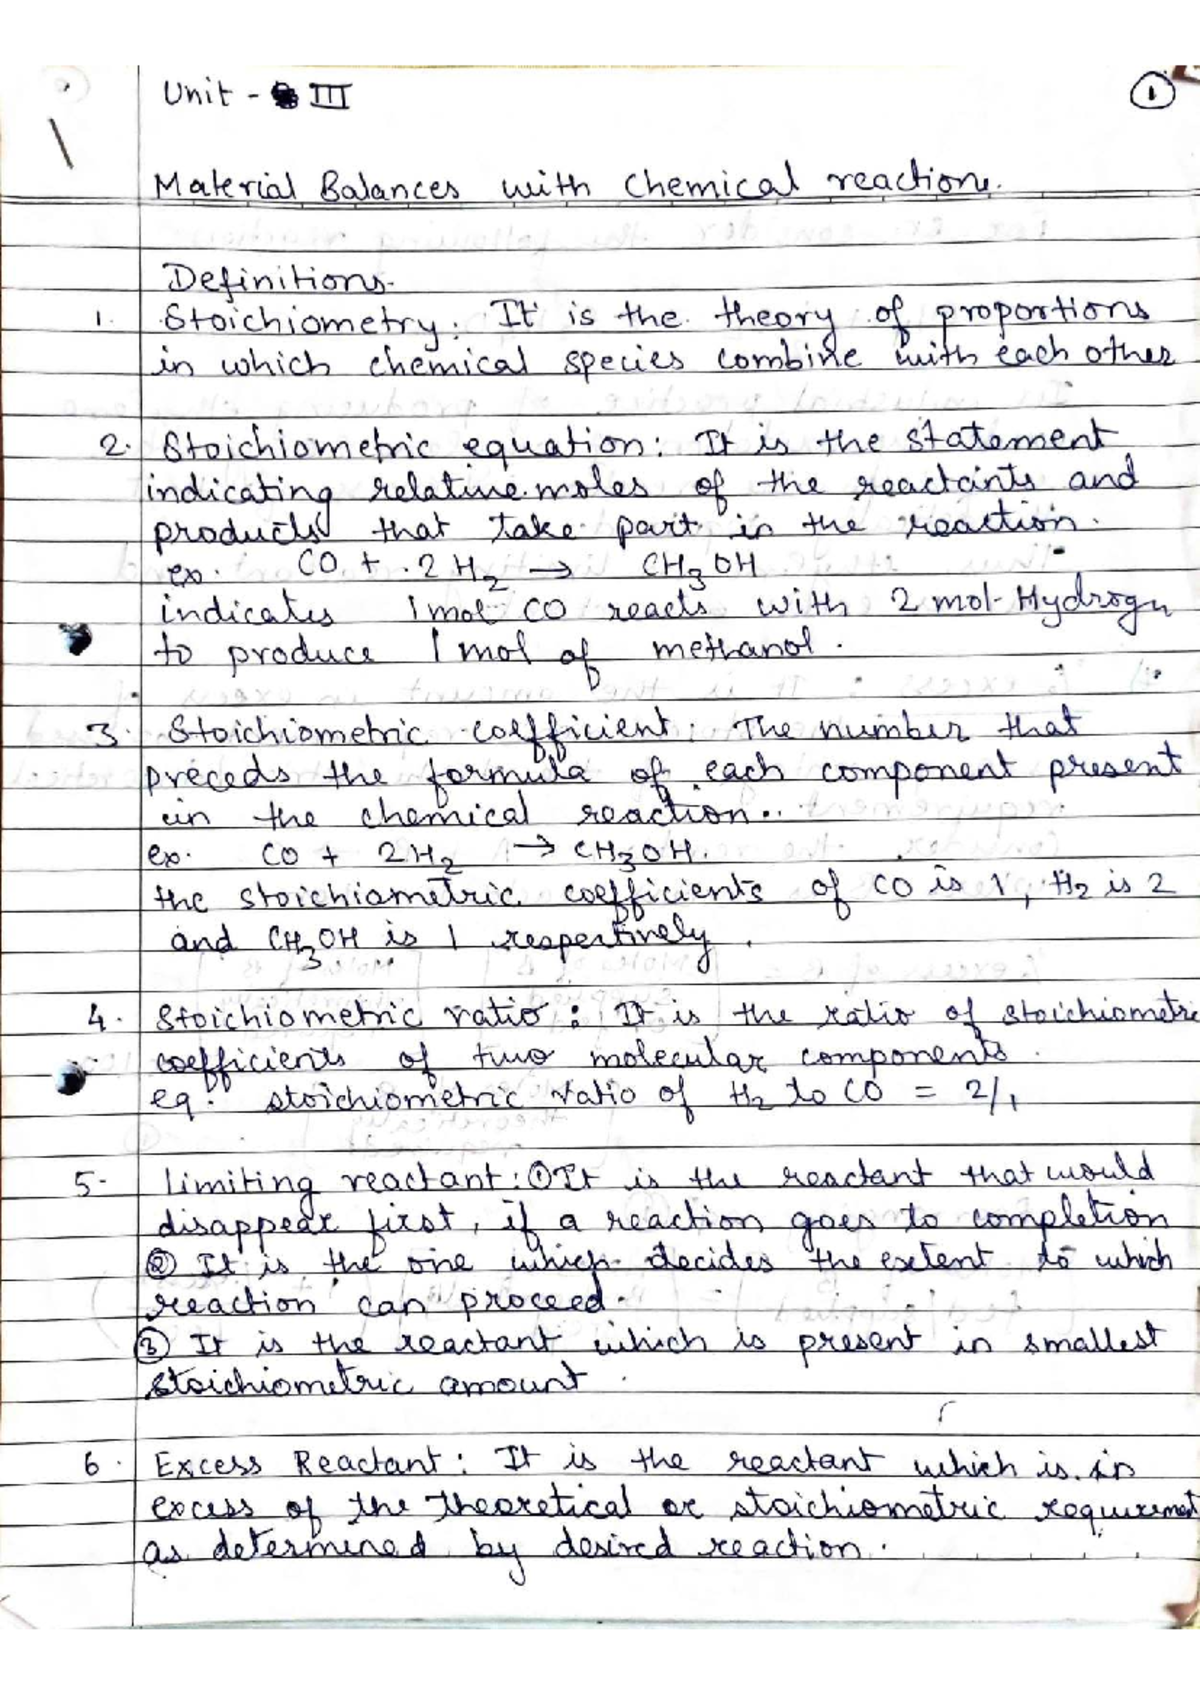 Unit - III
1
Material Balances with Chemical reaction.
Definitions.
1. Stoichiometry: It is the theory of proportions
in which chemical species combine with each other
2. Stoichiometric equation: It is the statement
indicating relative moles of the reactants and
products that take part in the reaction.
ex. CO + 2H2 → CH3OH
indicates 1 mol CO reacts with 2 mol Hydrogn
to produce 1 mol of methanol.
3. Stoichiometric coefficient: The number that
preceds the formula of each component present
in the chemical reaction..
ex. CO + 2H2 → CH3OH.
the stoichiometric coefficients of CO is 1, H2 is 2
and CH3OH is 1 respectively.
4. Stoichiometric ratio: It is the ratio of stoichiometric
coefficients of two molecular components.
eg: stoichiometric ratio of H2 to CO = 2/1
5. Limiting reactant: ① It is the reactant that would
disappear first, if a reaction goes to completion
② It is the one which decides the extent to which
reaction can proceed.
③ It is the reactant which is present in smallest
stoichiometric amount.
6. Excess Reactant: It is the reactant which is in
excess of the theoretical or stoichiometric requirement
as determined by desired reaction.